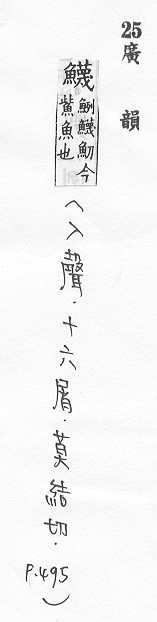 25 廣韻
鱴
鮤鱴魛今
鮆魚也
（入聲．十六屑．莫結切．P.495）